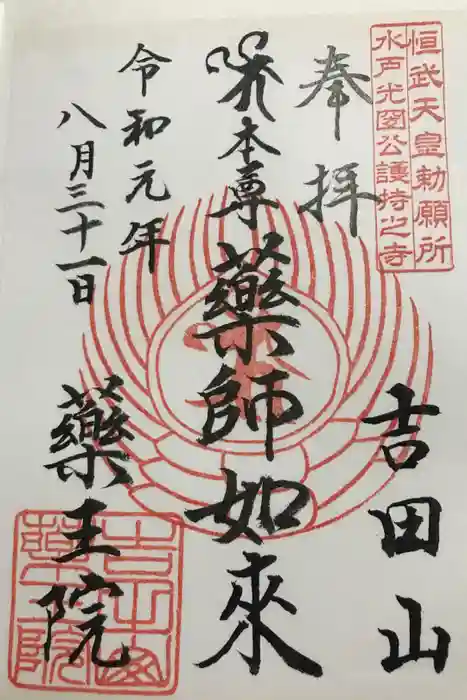 恒武天皇勅願所
水戸光圀公護持之寺
奉拝
吉田山
本尊
藥師如来
令和元年
八月三十一日
藥王院